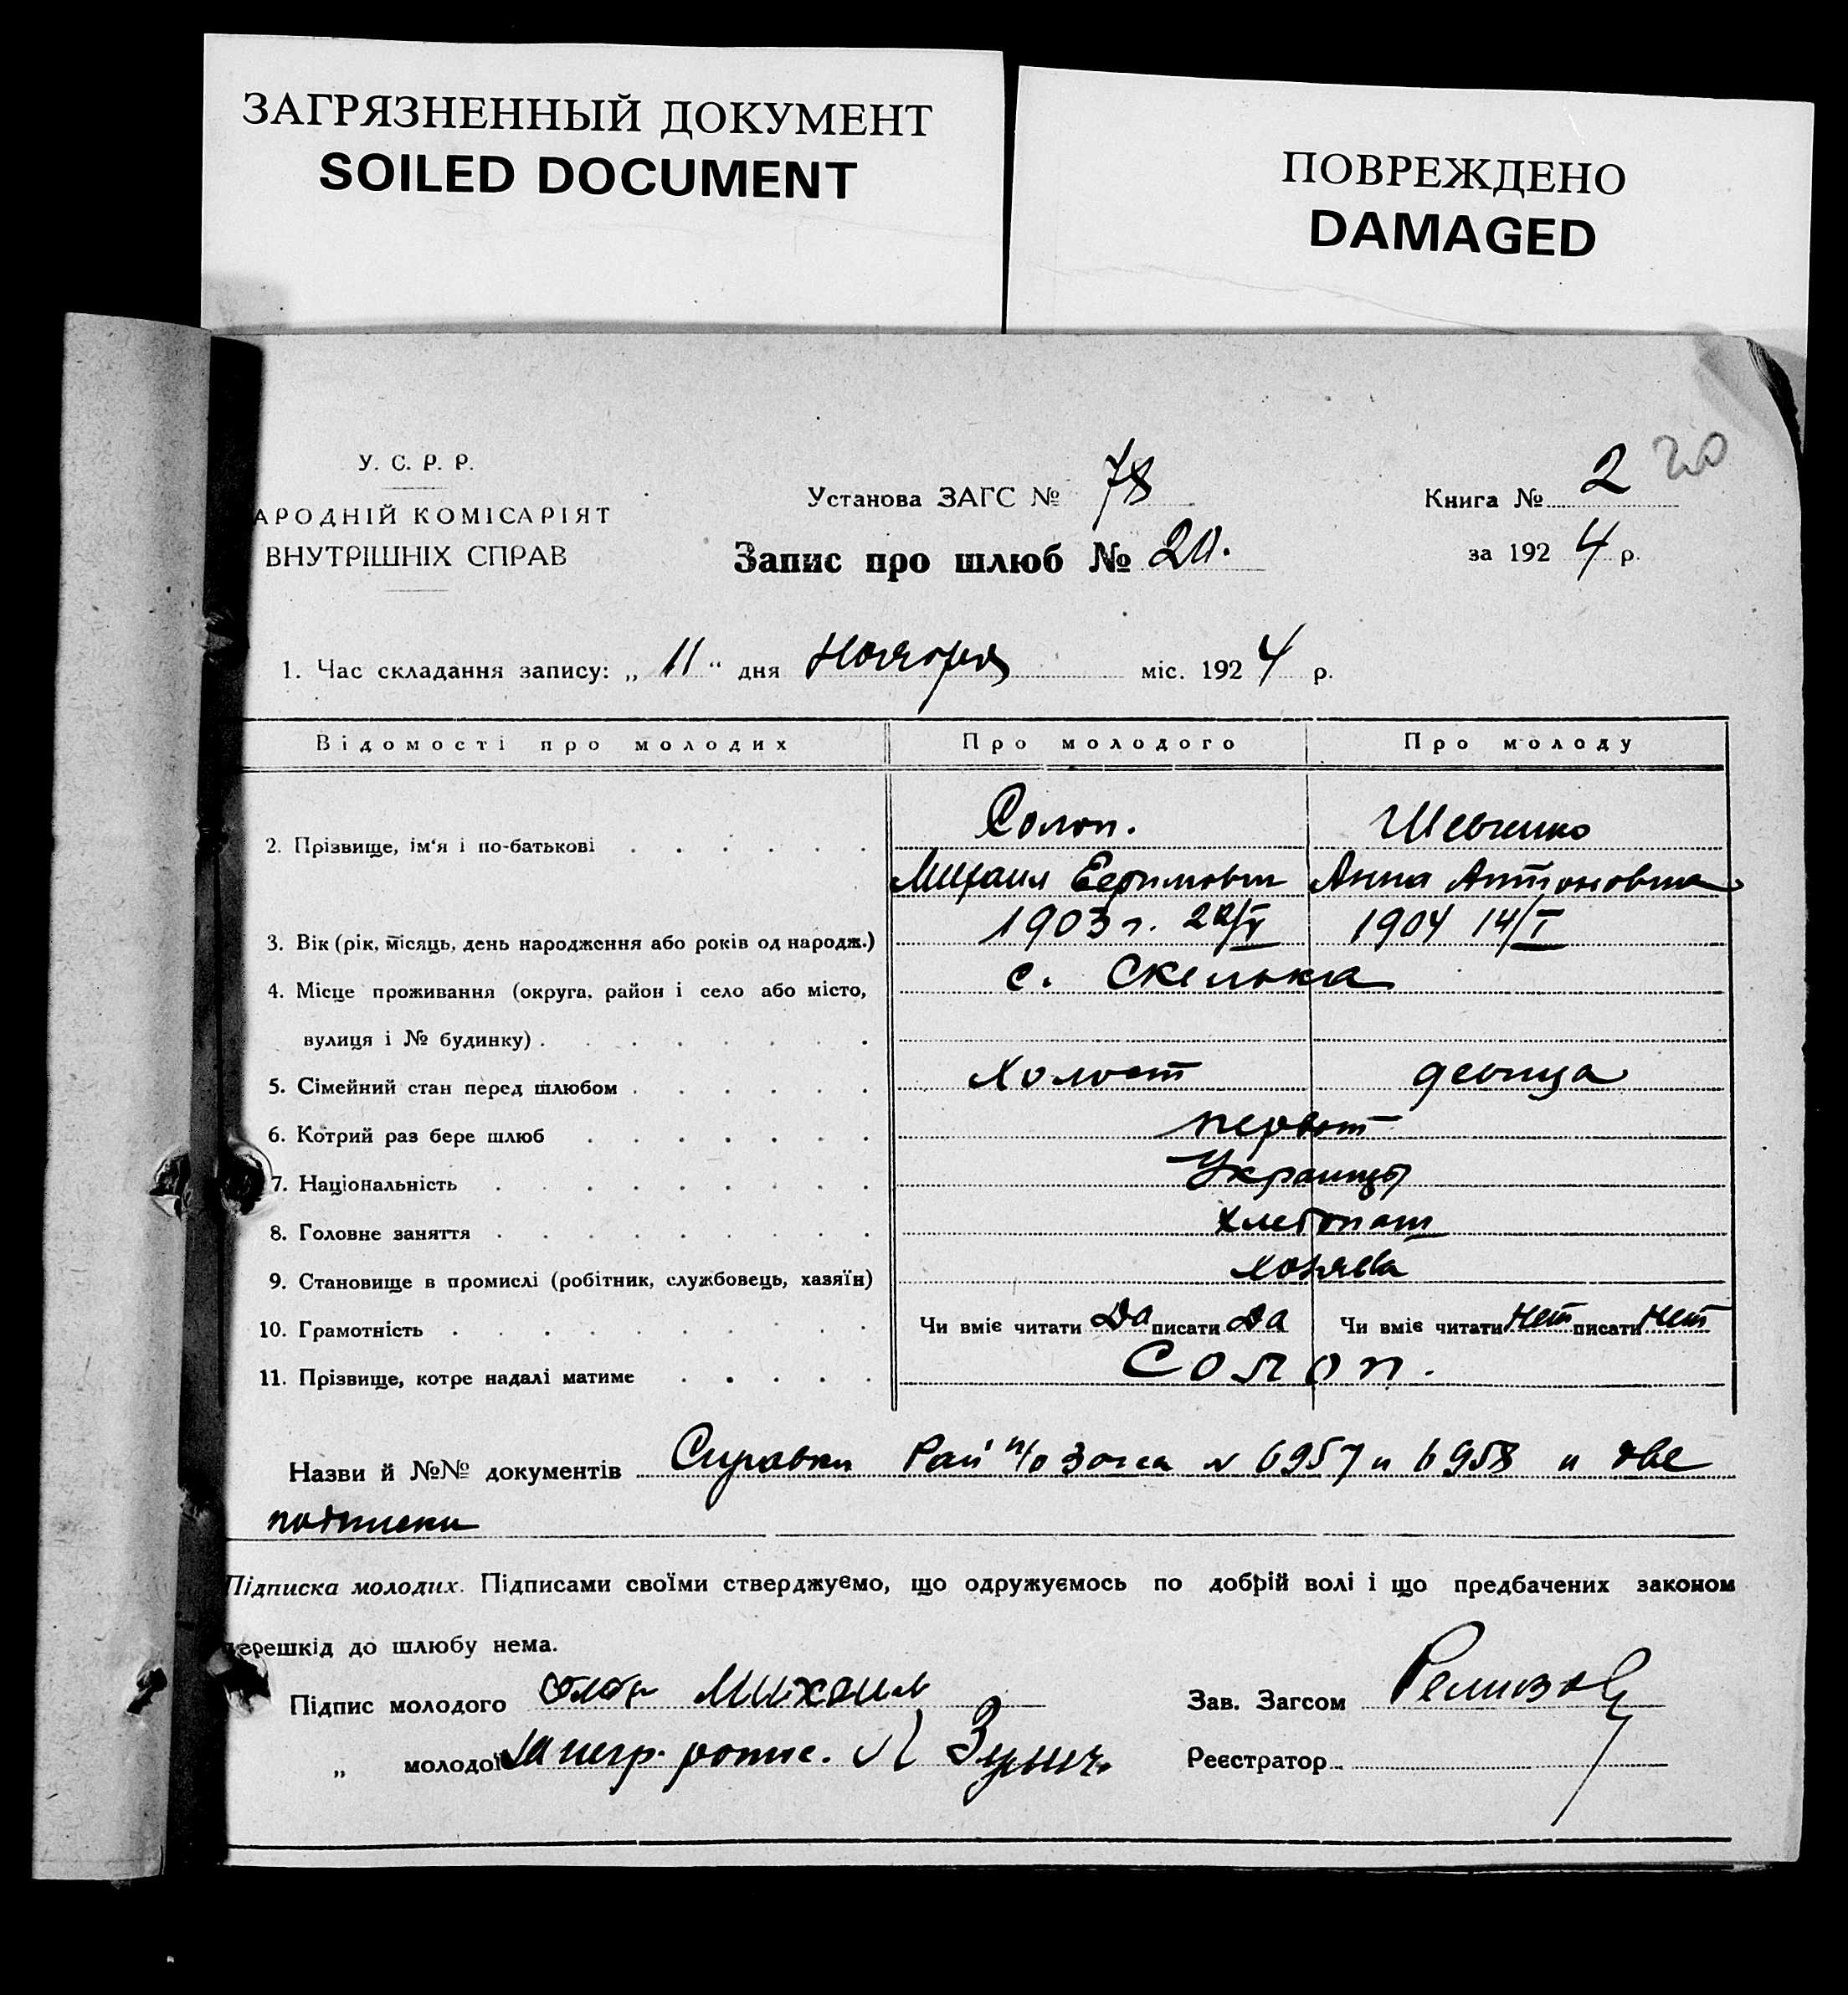 ЗАГРЯЗНЕННЫЙ ДОКУМЕНТ
SOILED DOCUMENT
ПОВРЕЖДЕНО
DAMAGED
У. С. Р. Р.
АРОДНІЙ КОМІСАРІЯТ
ВНУТРІШНІХ СПРАВ
Установа ЗАГС № 78
Запис про шлюб № 20.
Книга № 2 20
за 1924 р.
1. Час складання запису: „ 11 “ дня Ноября міс. 1924 р.
Відомості про молодих Про молодого Про молоду
2. Прізвище, ім'я і по-батькові Солоп. Шевченко
Михаил Ефимович Анна Антоновна
3. Вік (рік, місяць, день народження або років од народж.) 1903 г. 1904 14/I
4. Місце проживання (округа, район і село або місто, с. Скелька
вулиця і № будинку)
5. Сімейний стан перед шлюбом холост девица
6. Котрий раз бере шлюб первый
7. Національність Украинцы
8. Головне заняття хлебопаш
9. Становище в промислі (робітник, службовець, хазяїн) хозяева
10. Грамотність Чи вміє читати Да писати Да Чи вміє читати Нет писати Нет
11. Прізвище, котре надалі матиме Солоп.
Назви й №№ документів Справки Рай п/о Загса № 6957 и 6958 и две
подписки
Підписка молодих. Підписами своїми стверджуємо, що одружуємось по добрій волі і що предбачених законом
перешкід до шлюбу нема.
Підпис молодого Солоп Михаил Зав. Загсом Ремизов
„ молодої за негр. роспис. Реєстратор